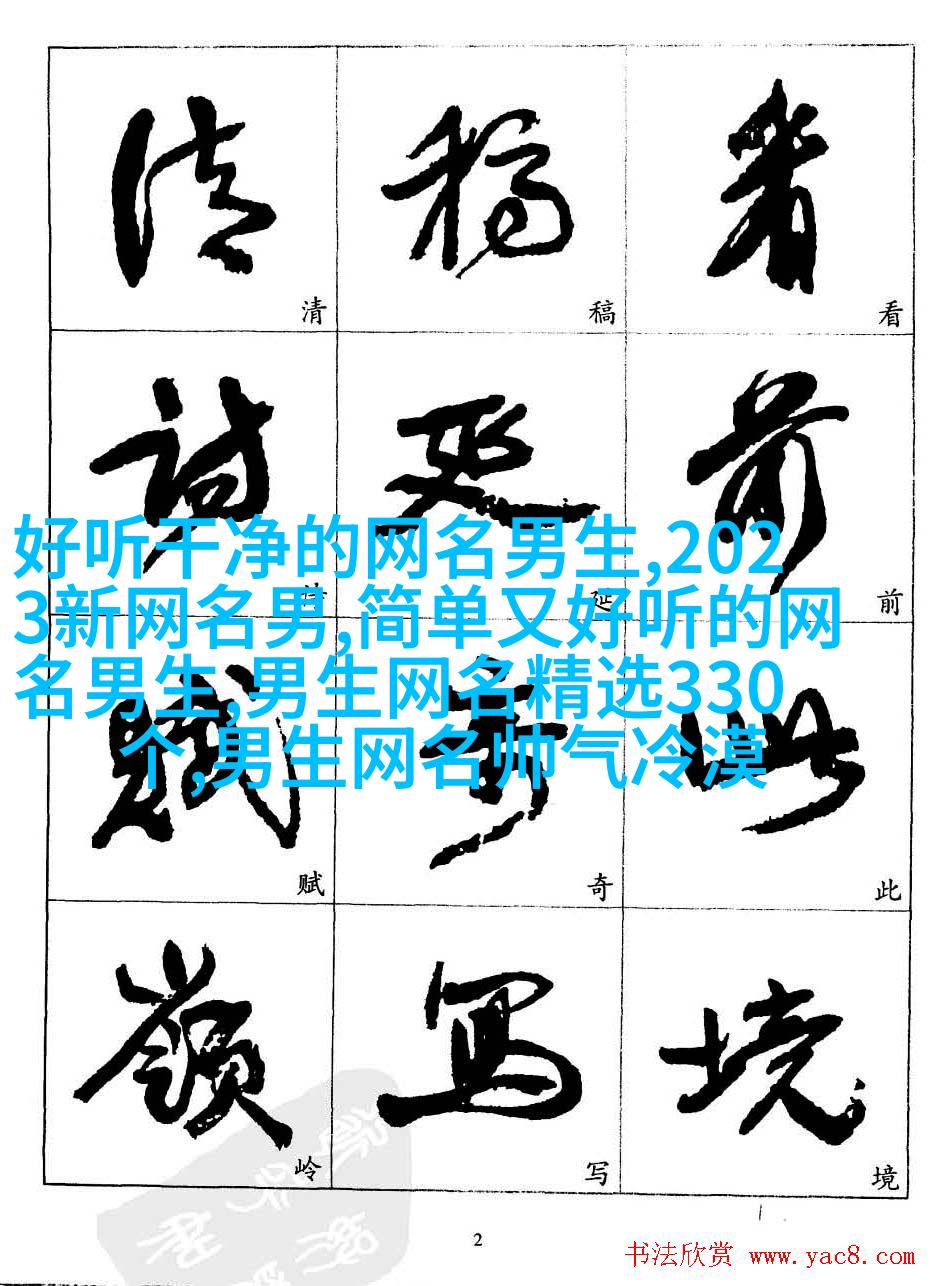 清 稿 看
清 稿 看
詩 延 前
好听干净的网名男生,202
延 前
3新网名男,简单又好听的网
名男生,男生网名精选330
个,男生网名帅气冷漠
賦 奇 此
赋 奇 此
嶺 寫 境
岭 写 境
2
书法欣赏 www.yac8.com